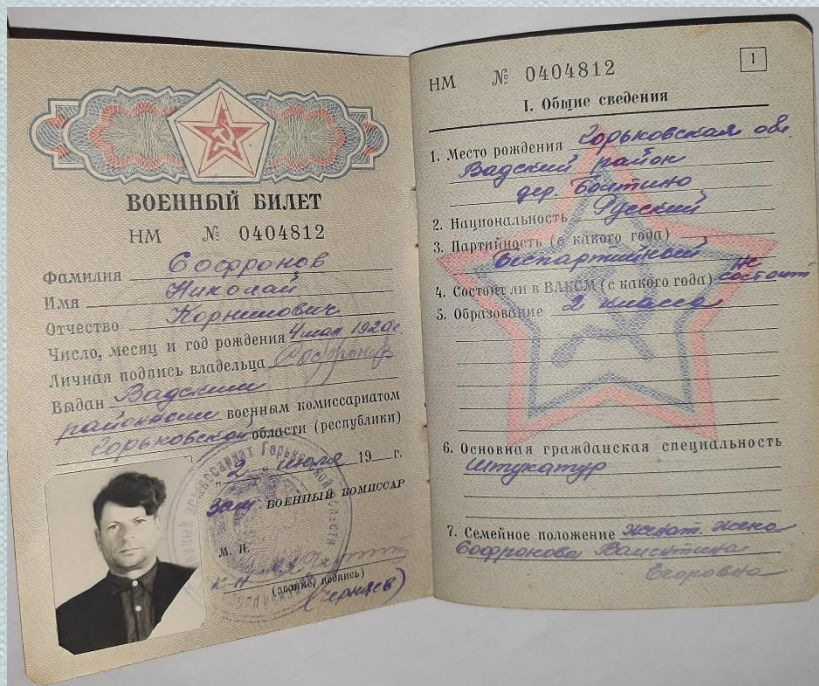 ВОЕННЫЙ БИЛЕТ
НМ № 0404812
Фамилия Софронов
Имя Николай
Отчество Корнилович
Число, месяц и год рождения 4 мая 1920г.
Личная подпись владельца Софронов
Выдан Вадским
районным военным комиссариатом
Горьковской области (республики)
„2„ июля 19 г.
Зам. ВОЕННЫЙ КОМИССАР
М. П.
к-н
(звание, подпись)
(Черняев)
НМ № 0404812
1
I. Общие сведения
1. Место рождения Горьковская обл.
Вадский район
дер. Болтино
2. Национальность Русский
3. Партийность (с какого года)
беспартийный
4. Состоит ли в ВЛКСМ (с какого года) не состоит
5. Образование 2 класса
6. Основная гражданская специальность
штукатур
7. Семейное положение женат. жена
Софронова Валентина
Егоровна